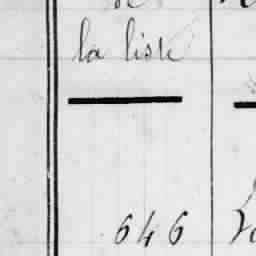 la liste
646